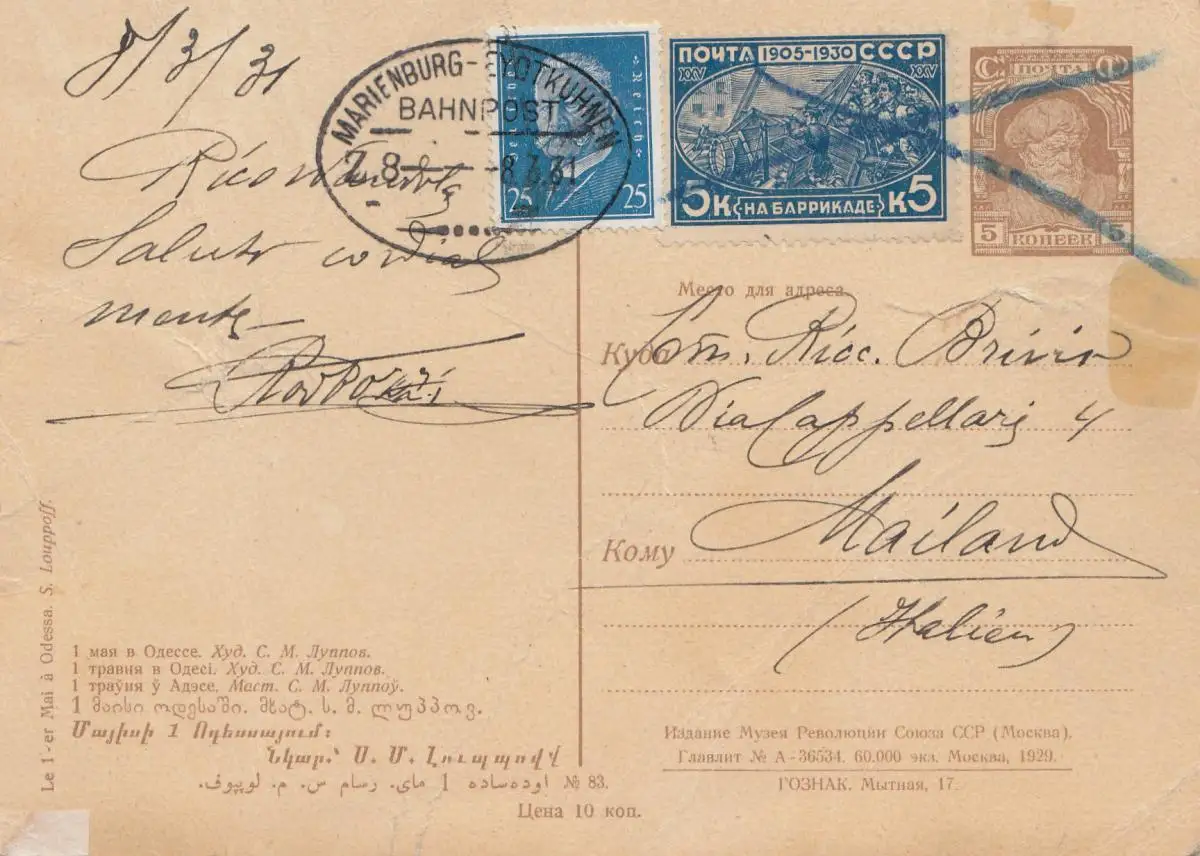 8/3/31
MARIENBURG-EYDTKUHNEN
BAHNPOST
Z. 8 -8.3.31
Deutsches Reich
25 25
ПОЧТА 1905-1930 СССР
XXV XXV
5К НА БАРРИКАДЕ К5
С ПОЧТА
5 КОПЕЕК 5
Saluto cordial
mente
Место для адреса
Куда
Ricc. Brivio
Via Cappellari 4
Mailand
Кому
(Italien)
Le 1-er Mai à Odessa. S. Louppoff.
1 мая в Одессе. Худ. С. М. Луппов.
1 травня в Одесі. Худ. С. М. Луппов.
1 траўня ў Адэсе. Маст. С. М. Луппоў.
1 მაისი ოდესაში. მხატ. ს. მ. ლუპპოვ.
Մայիսի 1 Ոդեսսայում։
Նկար՝ Ս. Մ. Լուպպովի
اودهساده 1 مای. رسام س. م. لوپپوف. № 83.
Цена 10 коп.
Издание Музея Революции Союза ССР (Москва).
Главлит № А-36534. 60.000 экз. Москва, 1929.
ГОЗНАК. Мытная, 17.